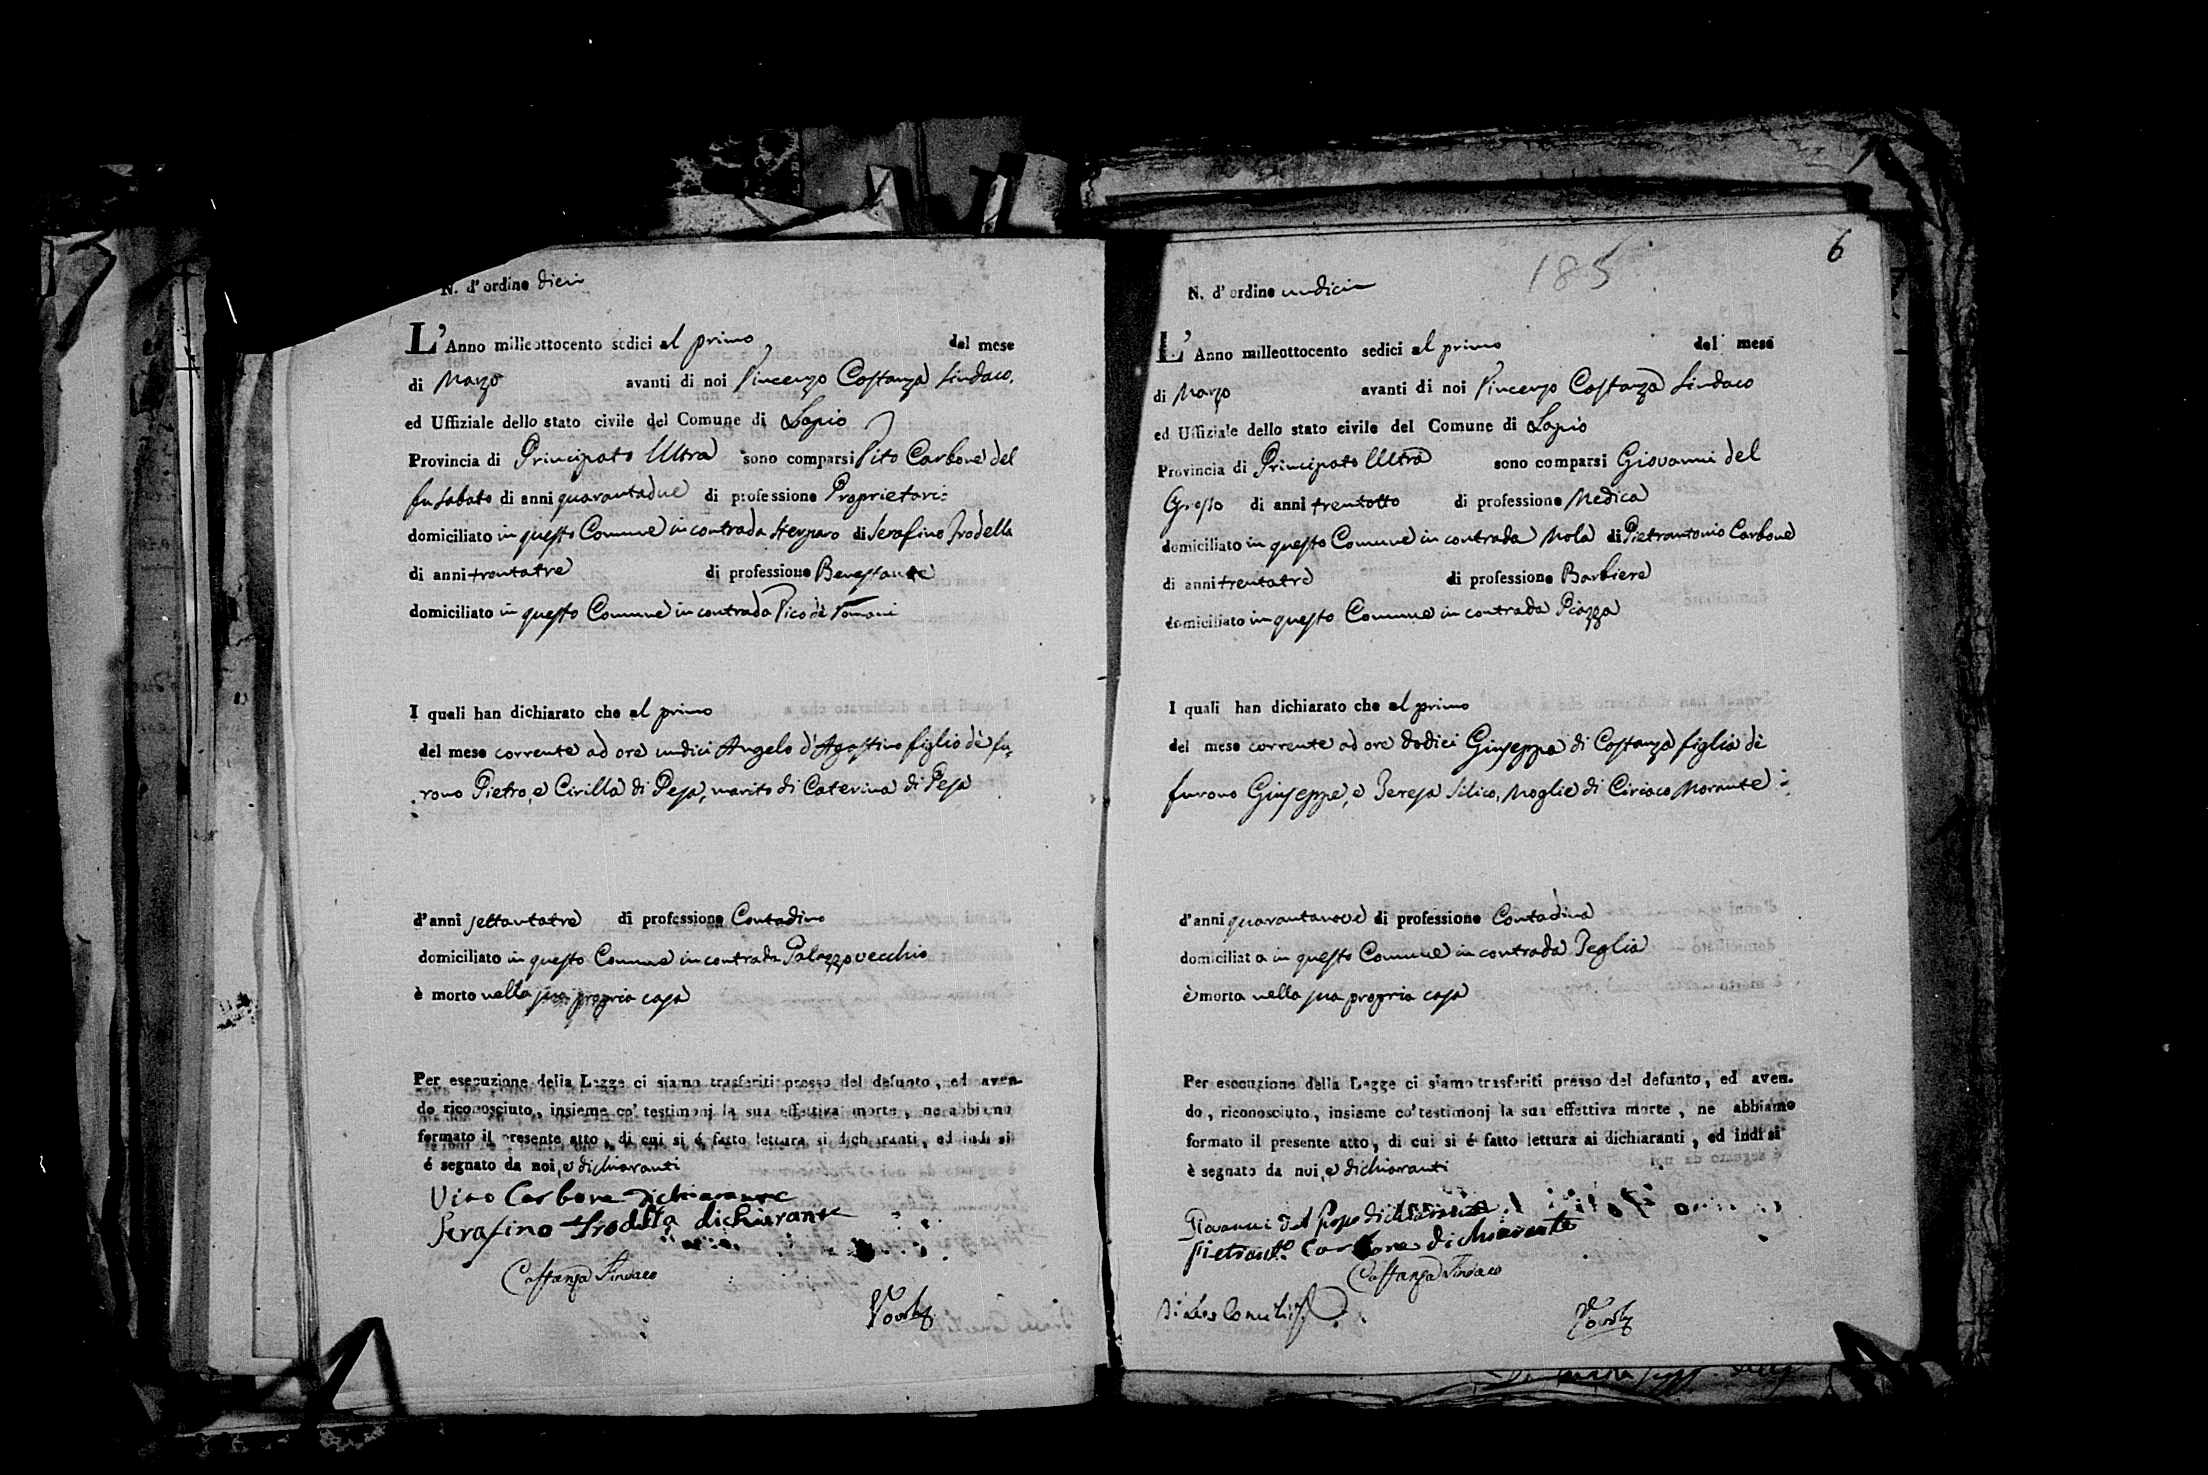 N. d'ordine dieci
L'Anno milleottocento sedici al primo del mese
di Marzo avanti di noi Vincenzo Costanza Sindaco,
ed Uffiziale dello stato civile del Comune di Lapio
Provincia di Principato Ultra sono comparsi Vito Carbone del
fu Sabato di anni quarantadue di professione Proprietario
domiciliato in questo Comune in contrada di Serafino Trodella
di anni trentatre di professione Benestante
domiciliato in questo Comune in contrada Vico de
I quali han dichiarato che al primo
del mese corrente ad ore undici Angelo d'Agostino figlio de fu-
rono Pietro, e Cirilla di Pesa, marito di Caterina di Pesa
d'anni settantatre di professione Contadino
domiciliato in questo Comune in contrada Palazzovecchio
è morto nella sua propria casa
Per esecuzione della Legge ci siamo trasferiti presso del defunto, ed aven-
do riconosciuto, insieme co' testimonj la sua effettiva morte, ne abbiamo
formato il presente atto, di cui si é fatto lettura ai dichiaranti, ed indi si
é segnato da noi, e dichiaranti
Vito Carbone dichiarante
Serafino Trodella dichiarante
Costanza Sindaco
6
185
N. d'ordine undici
L'Anno milleottocento sedici al primo del mese
di Marzo avanti di noi Vincenzo Costanza Sindaco
ed Uffiziale dello stato civile del Comune di Lapio
Provincia di Principato Ultra sono comparsi Giovanni del
Grosso di anni trentotto di professione Medica
domiciliato in questo Comune in contrada Mola di Pietrantonio Carbone
di anni trentatre di professione Barbiere
domiciliato in questo Comune in contrada Piazza
I quali han dichiarato che al primo
del mese corrente ad ore dodici Giuseppa di Costanza figlia de
furono Giuseppe, e Teresa Silico, Moglie di Ciriaco Morante
d'anni quarantanove di professione Contadina
domiciliata in questo Comune in contrada Teglia
è morta nella sua propria casa
Per esecuzione della Legge ci siamo trasferiti presso del defunto, ed aven-
do, riconosciuto, insieme co' testimonj la sua effettiva morte, ne abbiamo
formato il presente atto, di cui si é fatto lettura ai dichiaranti, ed indi si
è segnato da noi, e dichiaranti
Giovanni del Grosso dichiarante
Pietrant.o Carbone dichiarante
Costanza Sindaco